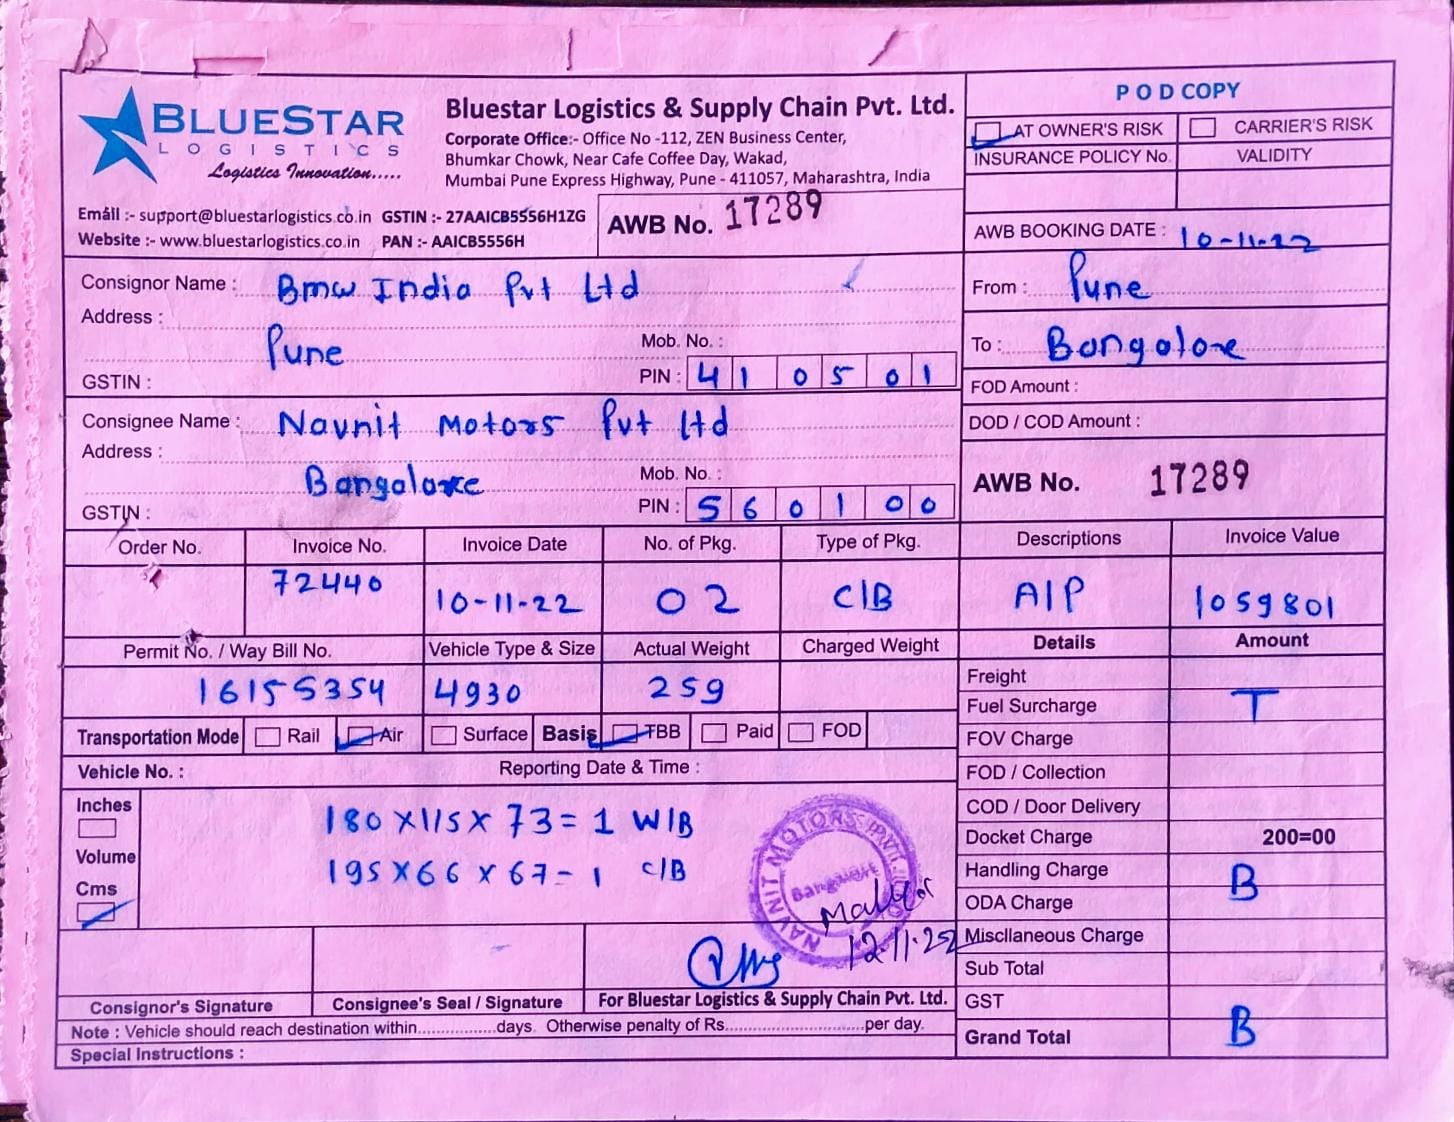 POD COPY
BLUESTAR
LOGISTICS
Logistics Innovation.....
Bluestar Logistics & Supply Chain Pvt. Ltd.
Corporate Office:- Office No -112, ZEN Business Center,
Bhumkar Chowk, Near Cafe Coffee Day, Wakad,
Mumbai Pune Express Highway, Pune - 411057, Maharashtra, India
AT OWNER'S RISK CARRIER'S RISK
INSURANCE POLICY No. VALIDITY
Email :- support@bluestarlogistics.co.in GSTIN :- 27AAICB5556H1ZG
Website :- www.bluestarlogistics.co.in PAN :- AAICB5556H
AWB No. 17289
AWB BOOKING DATE : 10-11-22
Consignor Name : Bmw India Pvt Ltd
From : Pune
Address :
Pune
Mob. No. :
To : Bangalore
GSTIN :
PIN : 410501
FOD Amount :
Consignee Name : Navnit Motors Pvt Ltd
DOD / COD Amount :
Address :
Bangalore
Mob. No. :
AWB No. 17289
GSTIN :
PIN : 560100
Order No. Invoice No. Invoice Date No. of Pkg. Type of Pkg. Descriptions Invoice Value
72440 10-11-22 02 C/B A/P 1059801
Permit No. / Way Bill No. Vehicle Type & Size Actual Weight Charged Weight Details Amount
16155354 4930 259
Freight
Fuel Surcharge T
Transportation Mode Rail Air Surface Basis TBB Paid FOD
FOV Charge
Vehicle No. : Reporting Date & Time :
FOD / Collection
Inches
180 X 115 X 73 = 1 W/B
COD / Door Delivery
Docket Charge 200=00
Volume
195 X 66 X 67 - 1 C/B
Handling Charge B
Cms
ODA Charge
NAVNIT MOTORS PVT.
Bangalore
Miscllaneous Charge
Sub Total
Consignor's Signature Consignee's Seal / Signature For Bluestar Logistics & Supply Chain Pvt. Ltd.
GST
Note : Vehicle should reach destination within..................days. Otherwise penalty of Rs................................per day.
Grand Total B
Special Instructions :